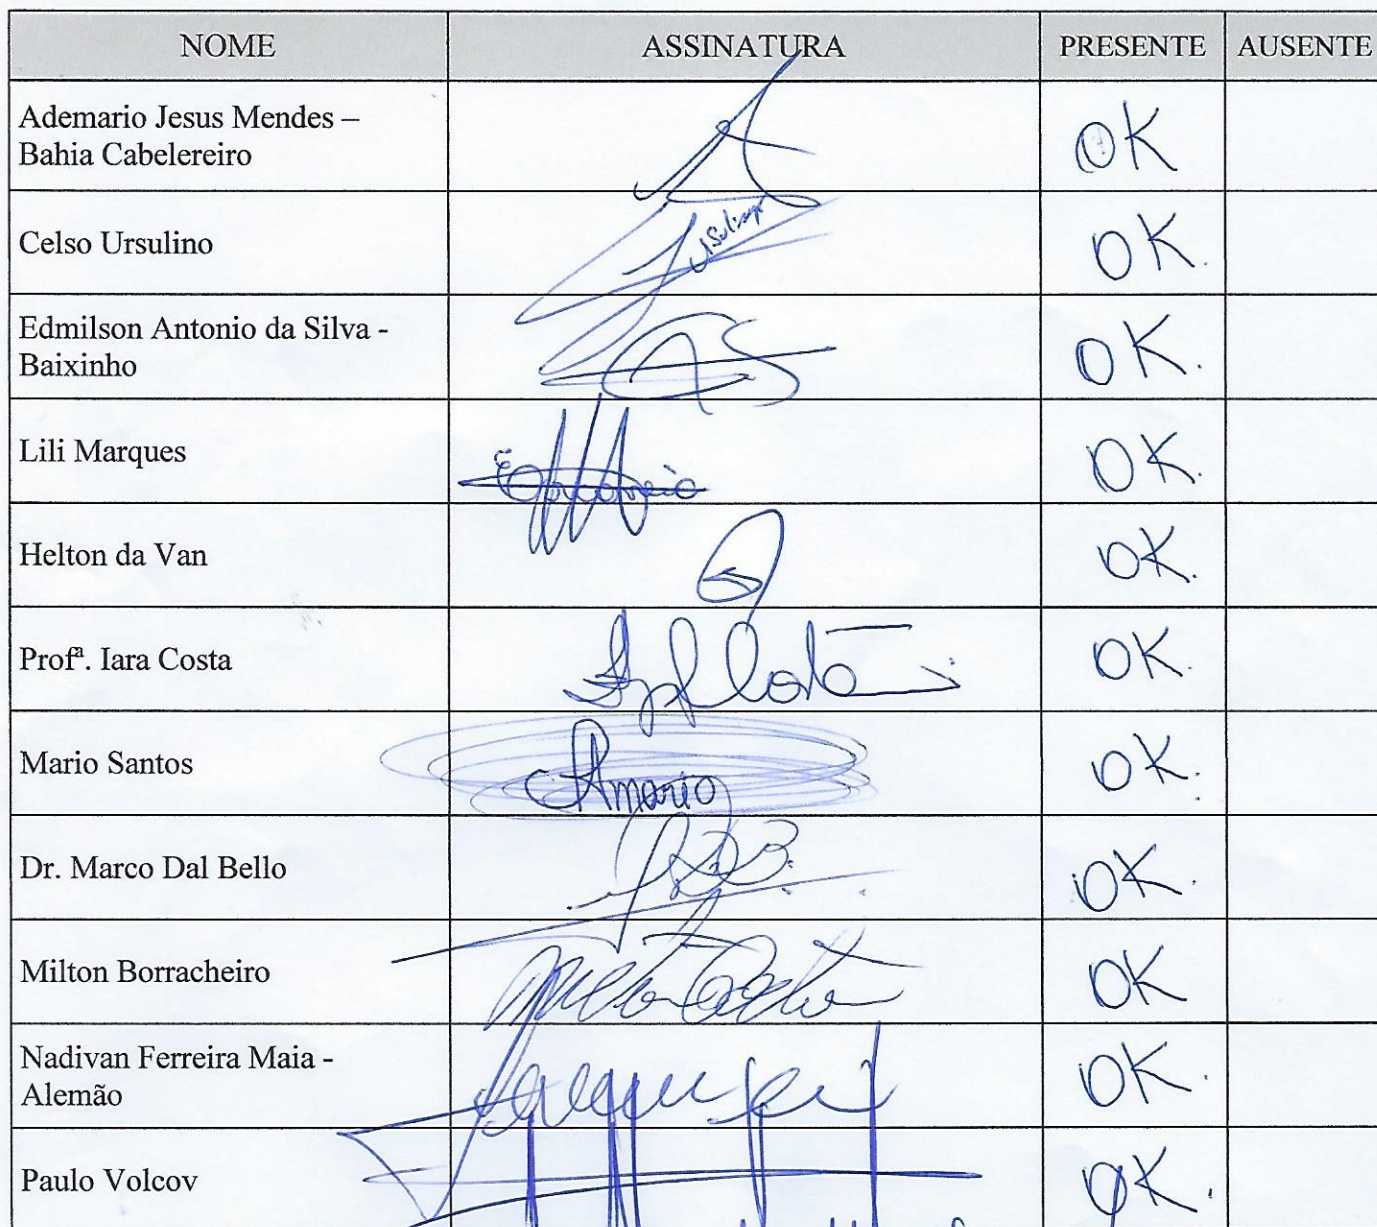 NOME ASSINATURA PRESENTE AUSENTE
Ademario Jesus Mendes –
Bahia Cabelereiro
OK
Celso Ursulino
OK.
Edmilson Antonio da Silva -
Baixinho
OK.
Lili Marques
OK.
Helton da Van
OK.
Profª. Iara Costa
Costa
OK.
Mario Santos
mario
OK.
Dr. Marco Dal Bello
OK.
Milton Borracheiro
OK
Nadivan Ferreira Maia -
Alemão
OK.
Paulo Volcov
OK.